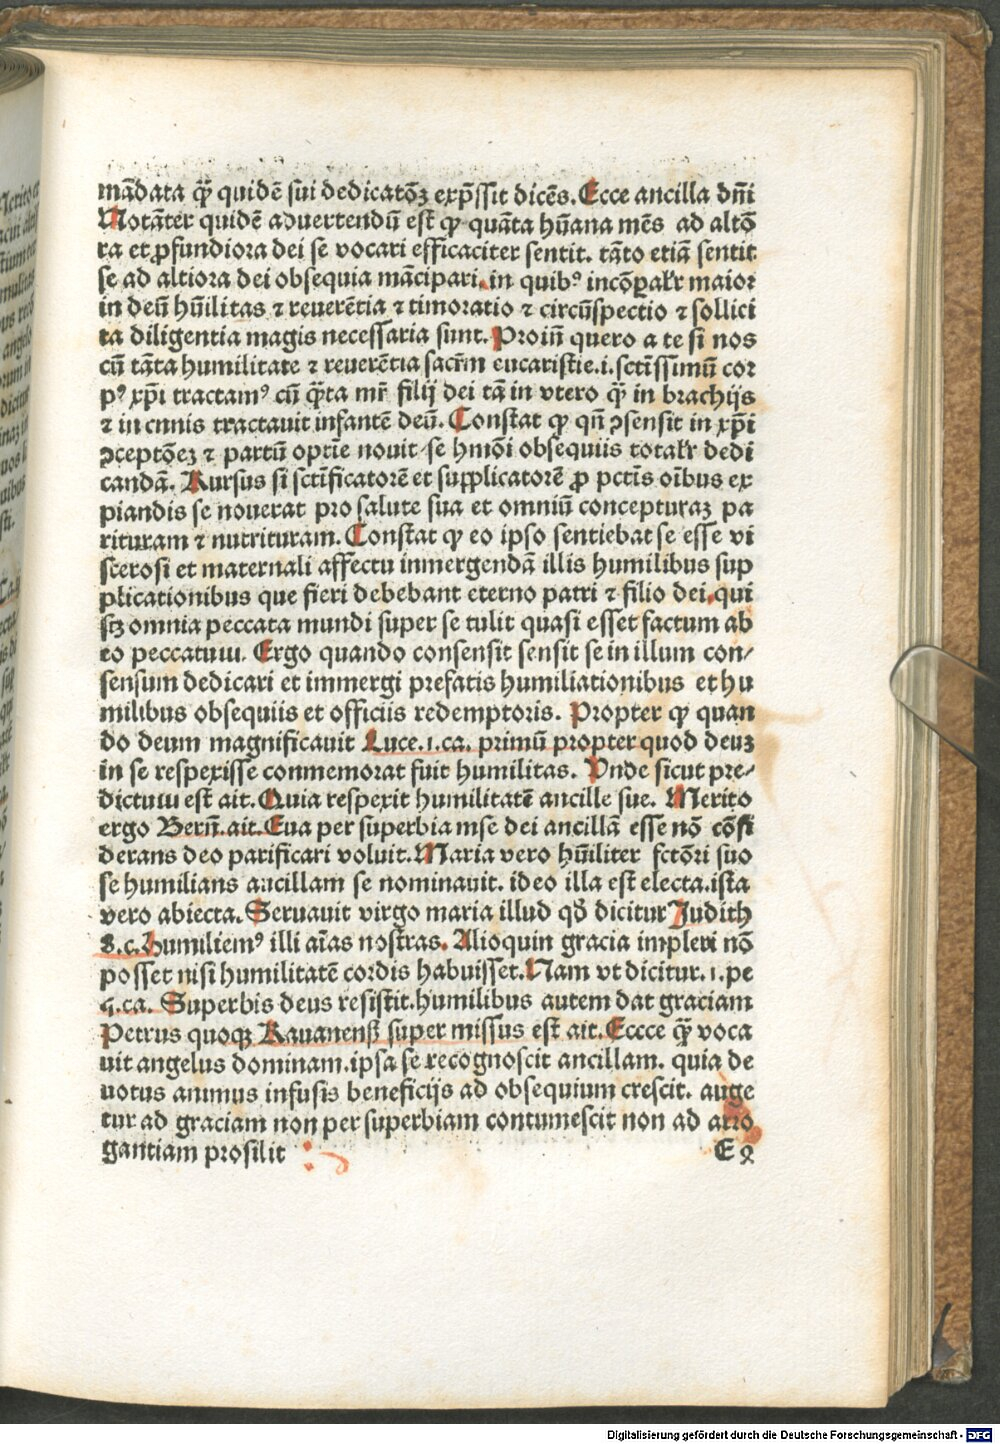 mãdata q̃ quidẽ sũi dedicatõꝫ exp̃ssit dicẽs. Ecce ancilla dñi
Notãter quidẽ aduertendũ est ꝙ quãta hũana mẽs ad altõ
ra et ꝓfundiora dei se vocari efficaciter sentit. tãto etiã sentit
se ad altiora dei obsequia mãcipari. in quibꝰ incõꝑalr̃ maior
in deũ hũilitas ⁊ reuerẽtia ⁊ timoratio ⁊ circũspectio ⁊ sollici
ta diligentia magis necessaria sunt. Proiñ quero a te si nos
cũ tãta humilitate ⁊ reuerẽtia sacr̃m eucaristie.i.sctĩssimũ cor
pꝰ xp̃i tractamꝰ cũ q̃ta mr̃ filij dei tã in vtero q̃ in brachijs
⁊ in cunis tractauit infantẽ deũ. Constat ꝙ qñ ꝯsensit in xp̃i
ꝯceptõeꝫ ⁊ partũ optĩe nouit se hmõi obsequiis totalr̃ dedi
candã. Rursus si sctĩficatorẽ et supplicatorẽ ꝓ pctĩs oĩbus ex
piandis se nouerat pro salute sua et omniũ concepturaꝫ pa
rituram ⁊ nutrituram. Constat ꝙ eo ipso sentiebat se esse vi
scerosi et maternali affectu inmergendã illis humilibus sup
plicationibus que fieri debebant eterno patri ⁊ filio dei. qui
sꝫ omnia peccata mundi super se tulit quasi esset factum ab
eo peccatum. Ergo quando consensit sensit se in illum con⸗
sensum dedicari et immergi prefatis humiliationibus et hu
milibus obsequiis et officiis redemptoris. Propter ꝙ quan
do deum magnificauit Luce.i.ca. primũ propter quod deuꝫ
in se respexisse conmemorat fuit humilitas. Vnde sicut pre⸗
dictum est ait. Quia respexit humilitatẽ ancille sue. Merito
ergo Berñ.ait.Eua per superbia mse dei ancillã esse nõ cõsi
derans deo parificari voluit.Maria vero hũiliter fctõri suo
se humilians ancillam se nominauit. ideo illa est electa.ista
vero abiecta. Seruauit virgo maria illud qd̃ dicitur Judith
8.c.humiliemꝰ illi aĩas nostras. Alioquin gracia impleri nõ
posset nisi humilitatẽ cordis habuisset.Nam vt dicitur.i.pe
5.ca. Superbis deus resistit.humilibus autem dat graciam
Petrus quoqꝫ Rauanenß super missus est ait.Eccce q̃ voca
uit angelus dominam.ipsa se recognoscit ancillam. quia de
uotus animus infusis beneficijs ad obsequium crescit. auge
tur ad graciam non per superbiam contumescit non ad arro
gantiam prosilit
E2
Digitalisierung gefördert durch die Deutsche Forschungsgemeinschaft - DFG